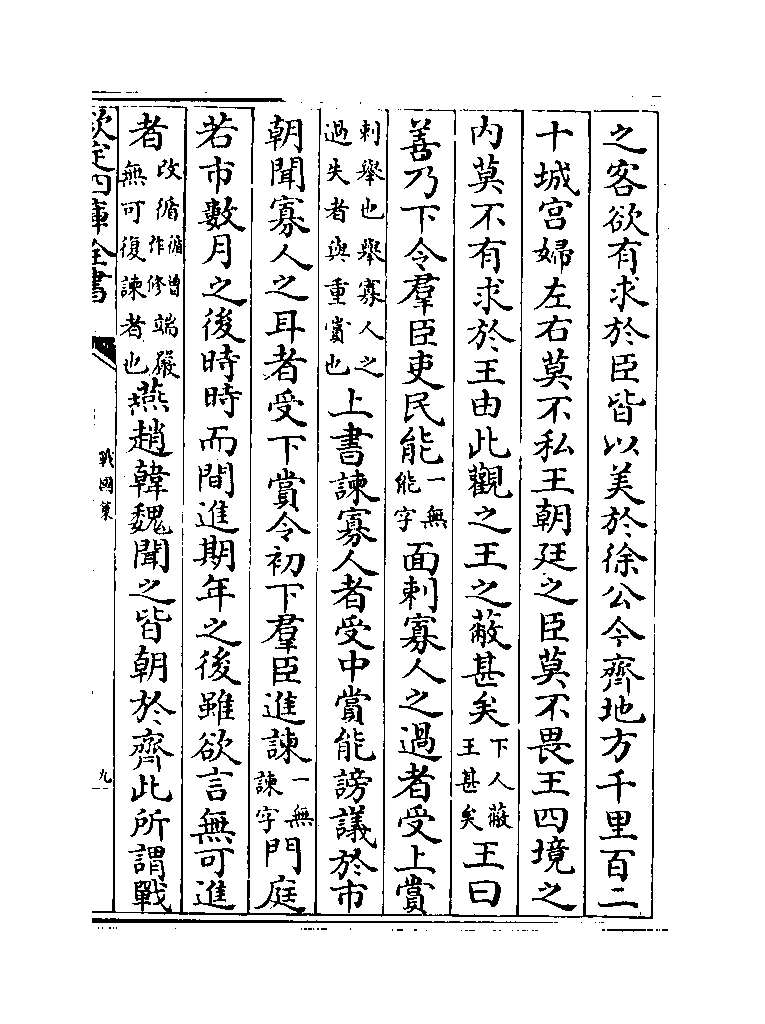 之客欲有求於臣皆以美於徐公今齊地方千里百二
十城宮婦左右莫不私王朝廷之臣莫不畏王四境之
内莫不有求於王由此觀之王之蔽甚矣下人蔽王甚矣王曰
善乃下令羣臣吏民能一無能字面刺寡人之過者受上賞
刺舉也舉寡人之過失者與重賞也上書諫寡人者受中賞能謗議於市
朝聞寡人之耳者受下賞令初下羣臣進諫一無諫字門庭
若市數月之後時時而間進期年之後雖欲言無可進
者改循循曾作修端嚴無可復諫者也燕趙韓魏聞之皆朝於齊此所謂戰
欽定四庫全書
戰國策
九